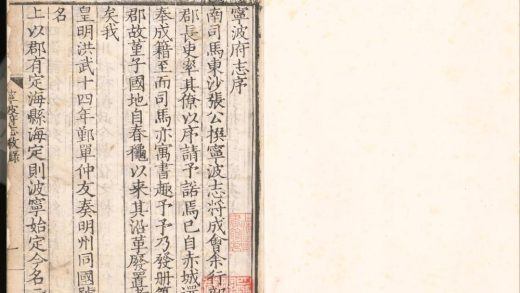 寧波府志序
南司馬東沙張公撰寧波志將成會余行部
郡長吏率其僚以序請予諾焉已自赤城還
奉成籍至而司馬亦寓書趣予予乃發冊
郡故堇子國地自春龝以來其沿革廢置
矣我
皇明洪武十四年鄞單仲友奏明州同國號
名
上以郡有定海縣海定則波寧始定今名